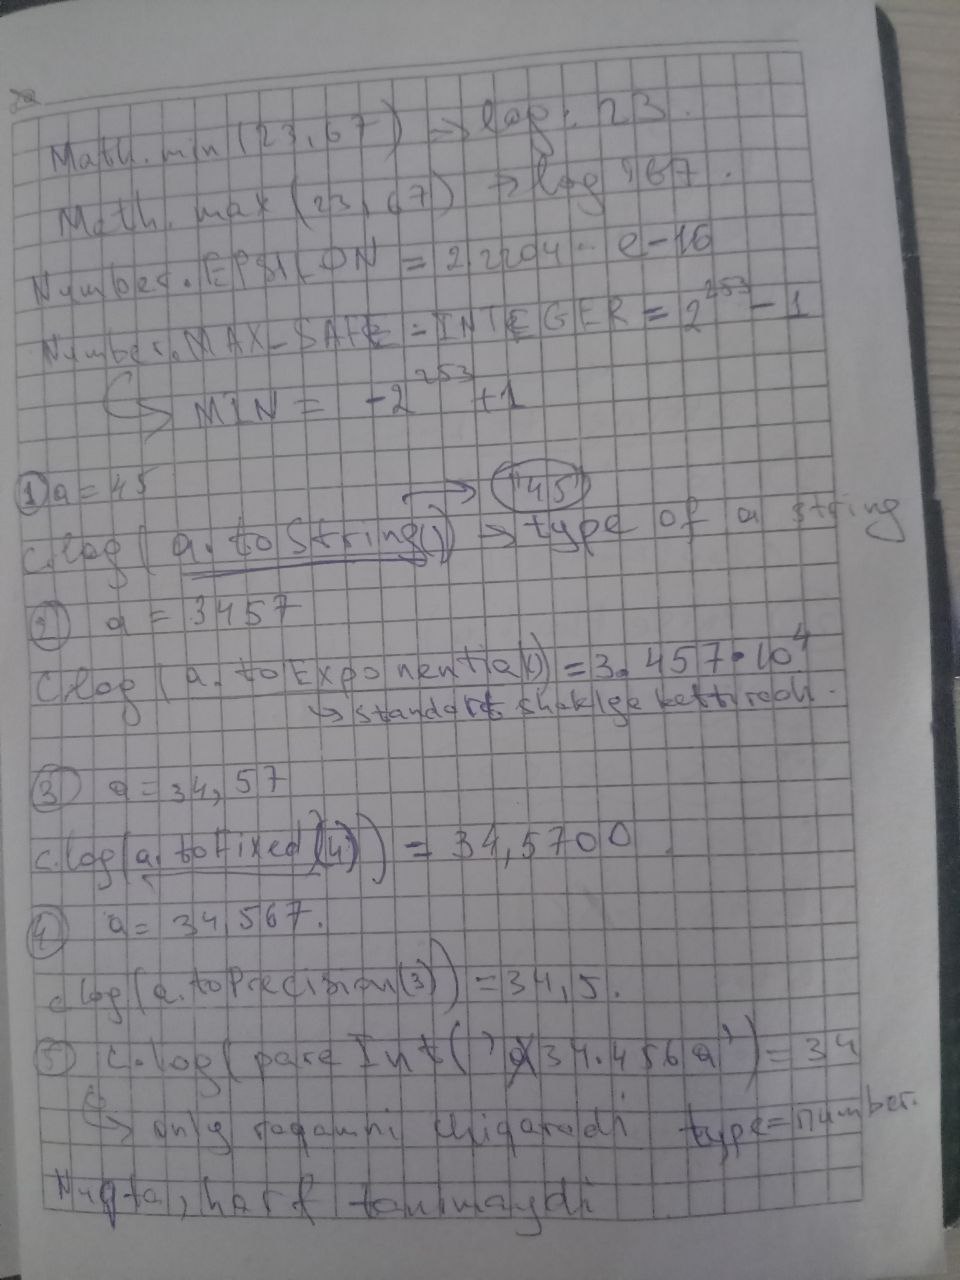 Math.min (23,67) → log: 23.
Math.max (23,67) → log :67.
Number.EPSILON = 2 2204 - e-16
Number.MAX_SAFE-INTEGER = 2²⁵³ - 1
↳ MIN = -2²⁵³ +1
① a = 45 → "45"
c.log( a.toString()) → type of a string
② a = 3457
C.log (a.toExponential()) = 3.457•10⁴
↳ standart shaklga keltiradi.
③ a = 34,57
c.log(a.toFixed(4)) = 34,5700
④ a = 34,567.
c log(a.toPrecision(3)) = 34,5.
⑤ c.log( parse Int('34.456a') = 34
↳ only raqamni chiqaradi type = number.
Nuqta, harf tanimaydi